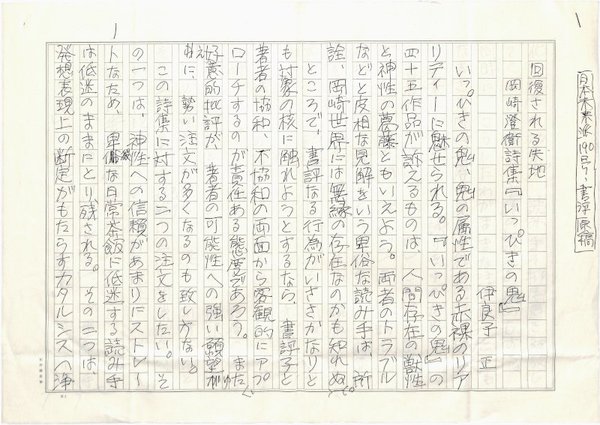 1
日本未来派190号・書評原稿
回復される失地
岡崎澄衛詩集『いっぴきの鬼』
伊良子 正
いっぴきの鬼、鬼の属性である赤裸のリア
リティーに魅せられる。『いっぴきの鬼』の
四十五作品が訴えるものは、人間存在の獣性
と神性の葛藤ともいえよう。両者のトラブル
などと皮相な見解をいう卑俗な読み手は、所
詮、岡崎世界には無縁の存在なのかも知れぬ。
ところで、書評なる行為がいささかなりと
も対象の核に触れようとするなら、書評子と
著者の協和、不協和の両面から客観的にアプ
ローチするのが責任ある態度であろう。また、
好意的批評が、著者の可能性への強い願望ゆ
えに、勢い注文が多くなるのも致しかない。
この詩集に対する二つの注文をしたい。そ
の一つは、神性への信頼があまりにストレー
トなため、卑俗な日常茶飯に低迷する読み手
は低迷のままにとり残される。その二つは、
発想表現上の断定がもたらすカタルシスへ浄